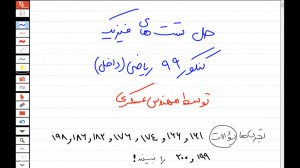 حل تست های فیزیک
کنکور ۹۹ ریاضی (داخل)
توسط مهندس عسکری
تجربی‌ها سؤالات ۱۶۱ و ۱۶۶ و ۱۷۴ و ۱۷۶ و ۱۸۲ و ۱۸۶ و ۱۹۸
۱۹۹ و ۲۰۰ را ببینند!